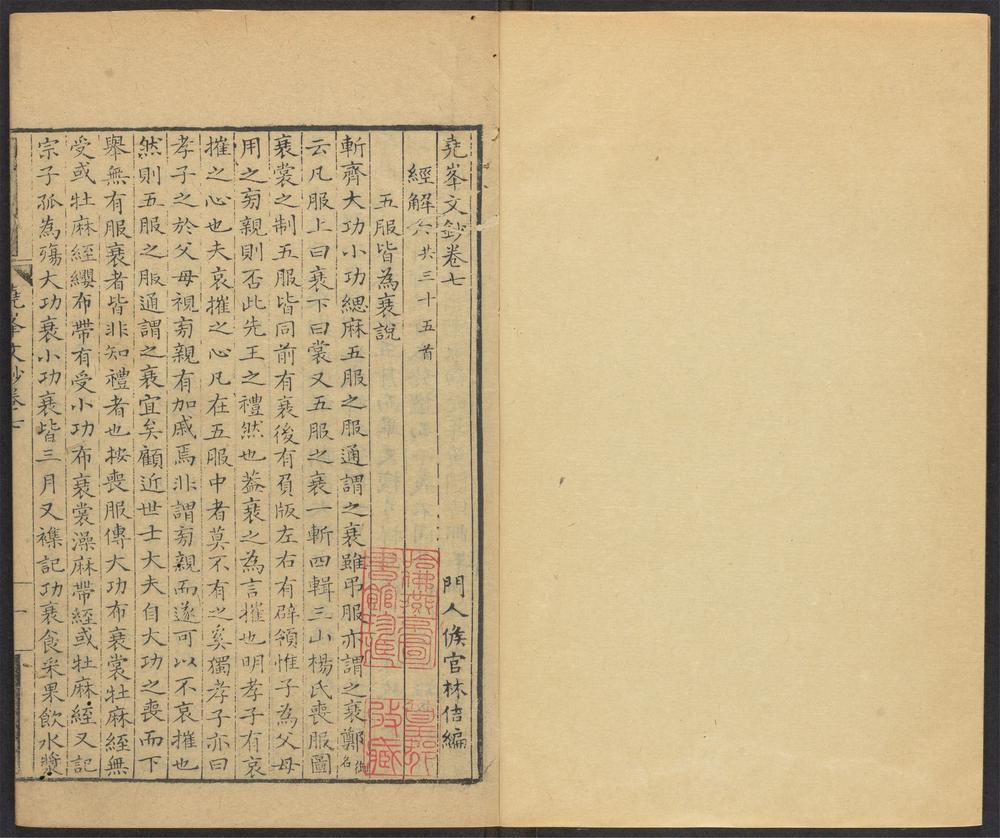 堯峯文鈔卷七
門人候官林佶編
經解六共三十五首
五服皆為衰說
斬齊大功小功緦麻五服之服通謂之衰雖弔服亦謂之衰鄭
云凡服上曰衰下曰裳又五服之衰一斬四輯三山楊氏喪服圖
衰裳之制五服皆同前有衰後有負版左右有辟領惟子為父母
用之旁親則否此先王之禮然也葢衰之為言摧也明孝子有哀
摧之心也夫哀摧之心凡在五服中者莫不有之奚獨孝子亦曰
孝子之於父母視旁親有加戚焉非謂旁親而遂可以不哀摧也
然則五服之服通謂之衰宜矣顧近世士大夫自大功之喪而下
舉無有服衰者皆非知禮者也按喪服傳大功布衰裳牡麻絰無
受或牡麻絰纓布帶有受小功布衰裳澡麻帶絰或牡麻絰又記
宗子孤為殤大功衰小功衰皆三月又襍記功衰食采果飲水漿
堯峯文鈔卷七
一
哈佛燕京圖書館珍藏